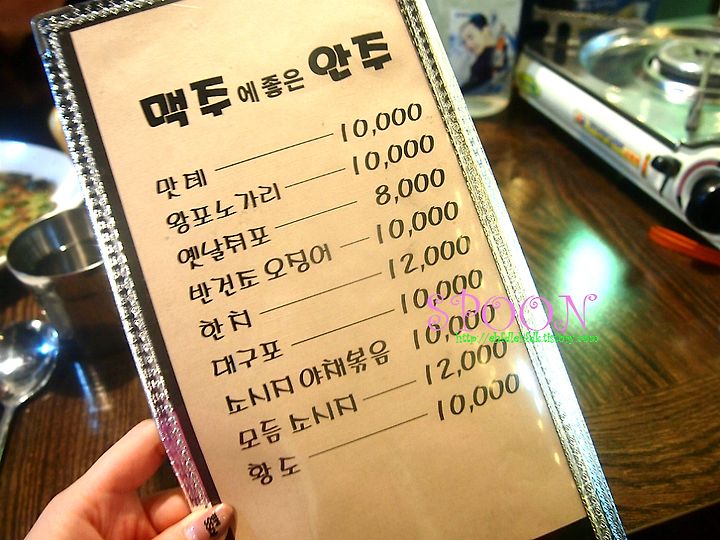 맥주에 좋은 안주
맛태 10,000
왕포노가리 10,000
옛날쥐포 8,000
반건조 오징어 10,000
한치 12,000
대구포 10,000
소시지 야채볶음 10,000
모듬 소시지 12,000
황노 10,000
SPOON